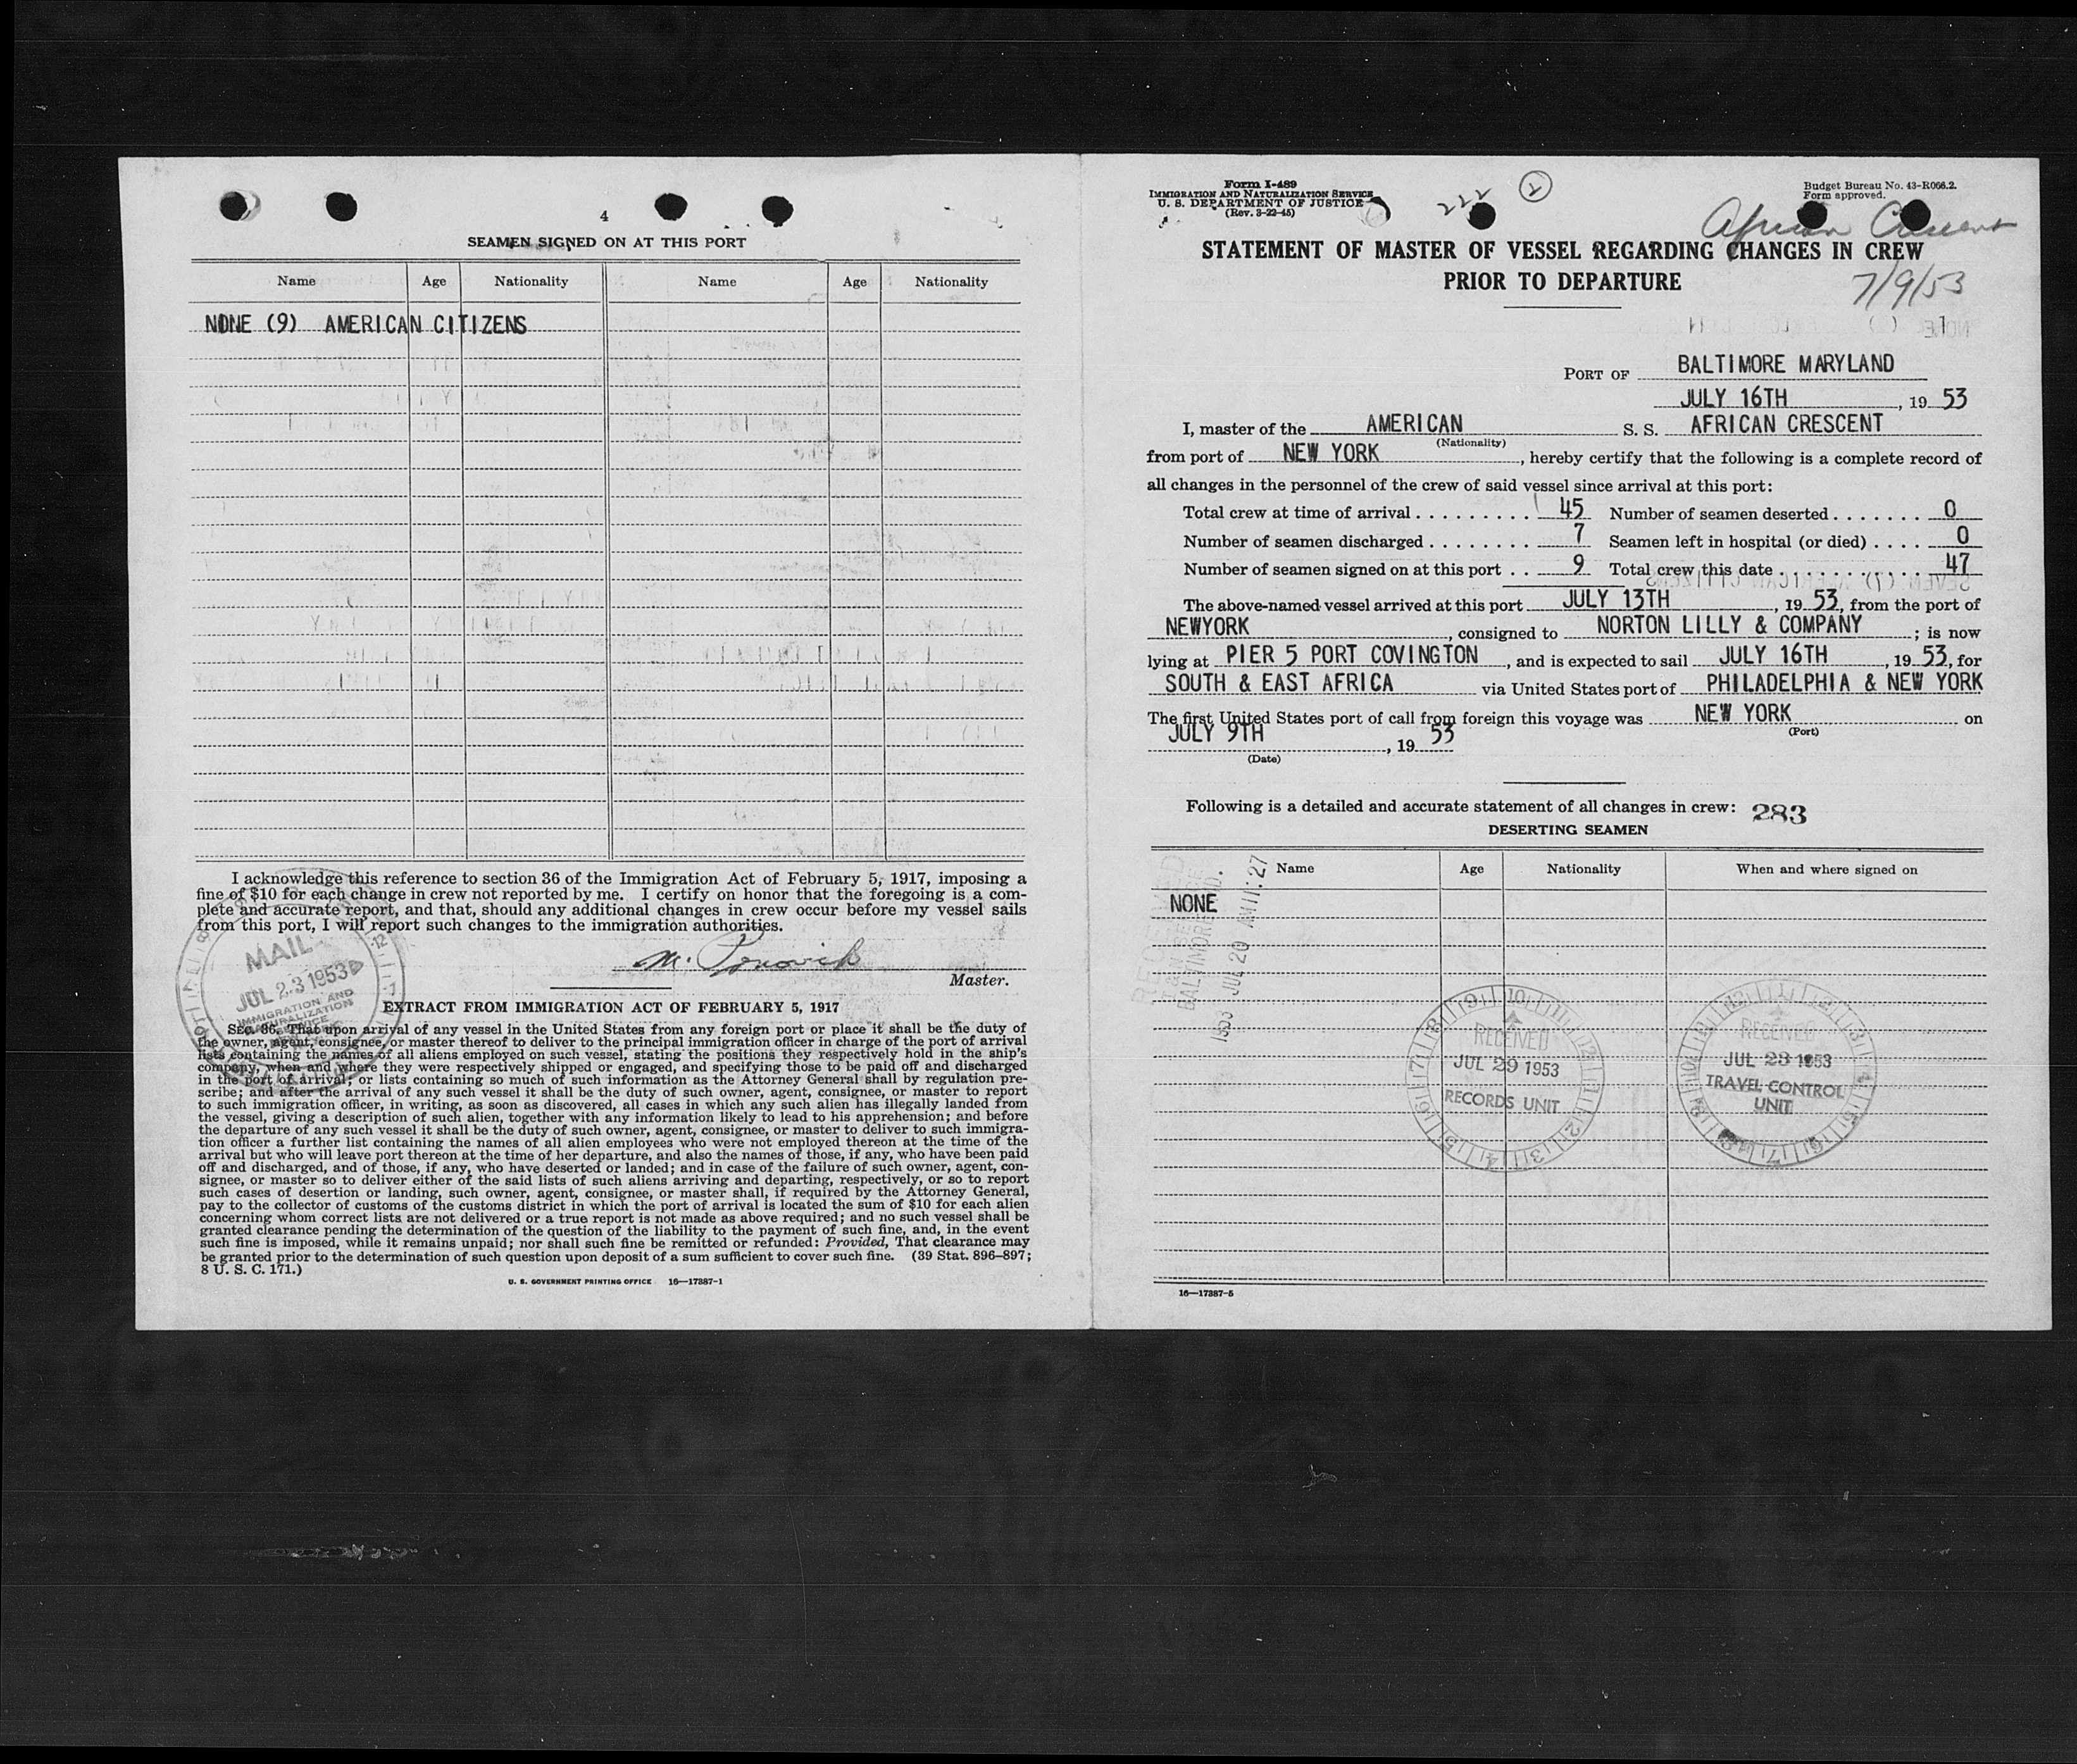 4
SEAMEN SIGNED ON AT THIS PORT
Name Age Nationality Name Age Nationality
NONE (9) AMERICAN CITIZENS
I acknowledge this reference to section 36 of the Immigration Act of February 5, 1917, imposing a
fine of $10 for each change in crew not reported by me. I certify on honor that the foregoing is a com-
plete and accurate report, and that, should any additional changes in crew occur before my vessel sails
from this port, I will report such changes to the immigration authorities.
Master.
MAIL
JUL 23 1953
IMMIGRATION AND
NATURALIZATION
SERVICE
EXTRACT FROM IMMIGRATION ACT OF FEBRUARY 5, 1917
SEC. 36. That upon arrival of any vessel in the United States from any foreign port or place it shall be the duty of
the owner, agent, consignee, or master thereof to deliver to the principal immigration officer in charge of the port of arrival
lists containing the names of all aliens employed on such vessel, stating the positions they respectively hold in the ship's
company, when and where they were respectively shipped or engaged, and specifying those to be paid off and discharged
in the port of arrival; or lists containing so much of such information as the Attorney General shall by regulation pre-
scribe; and after the arrival of any such vessel it shall be the duty of such owner, agent, consignee, or master to report
to such immigration officer, in writing, as soon as discovered, all cases in which any such alien has illegally landed from
the vessel, giving a description of such alien, together with any information likely to lead to his apprehension; and before
the departure of any such vessel it shall be the duty of such owner, agent, consignee, or master to deliver to such immigra-
tion officer a further list containing the names of all alien employees who were not employed thereon at the time of the
arrival but who will leave port thereon at the time of her departure, and also the names of those, if any, who have been paid
off and discharged, and of those, if any, who have deserted or landed; and in case of the failure of such owner, agent, con-
signee, or master so to deliver either of the said lists of such aliens arriving and departing, respectively, or so to report
such cases of desertion or landing, such owner, agent, consignee, or master shall, if required by the Attorney General,
pay to the collector of customs of the customs district in which the port of arrival is located the sum of $10 for each alien
concerning whom correct lists are not delivered or a true report is not made as above required; and no such vessel shall be
granted clearance pending the determination of the question of the liability to the payment of such fine, and, in the event
such fine is imposed, while it remains unpaid; nor shall such fine be remitted or refunded: Provided, That clearance may
be granted prior to the determination of such question upon deposit of a sum sufficient to cover such fine. (39 Stat. 896–897;
8 U. S. C. 171.)
U. S. GOVERNMENT PRINTING OFFICE 16—17387-1
Form I-489
IMMIGRATION AND NATURALIZATION SERVICE
U. S. DEPARTMENT OF JUSTICE
(Rev. 3-22-45)
222
Budget Bureau No. 43-R066.2.
Form approved.
African Crescent
STATEMENT OF MASTER OF VESSEL REGARDING CHANGES IN CREW
PRIOR TO DEPARTURE
7/9/53
PORT OF BALTIMORE MARYLAND
JULY 16TH, 19 53
I, master of the AMERICAN S. S. AFRICAN CRESCENT
(Nationality)
from port of NEW YORK, hereby certify that the following is a complete record of
all changes in the personnel of the crew of said vessel since arrival at this port:
Total crew at time of arrival . . . . . . . . . 45 Number of seamen deserted . . . . . . . 0
Number of seamen discharged . . . . . . . . 7 Seamen left in hospital (or died) . . . . 0
Number of seamen signed on at this port . . 9 Total crew this date . . . . . . . . . . . 47
The above-named vessel arrived at this port JULY 13TH, 19 53, from the port of
NEWYORK, consigned to NORTON LILLY & COMPANY; is now
lying at PIER 5 PORT COVINGTON, and is expected to sail JULY 16TH, 19 53, for
SOUTH & EAST AFRICA via United States port of PHILADELPHIA & NEW YORK
The first United States port of call from foreign this voyage was NEW YORK on
(Port)
JULY 9TH, 19 53
(Date)
Following is a detailed and accurate statement of all changes in crew: 283
DESERTING SEAMEN
Name Age Nationality When and where signed on
NONE
BALTIMORE
1953 JUL 20 AM 11:27
RECEIVED
JUL 29 1953
RECORDS UNIT
RECEIVED
JUL 23 1953
TRAVEL CONTROL
UNIT
16—17387-5